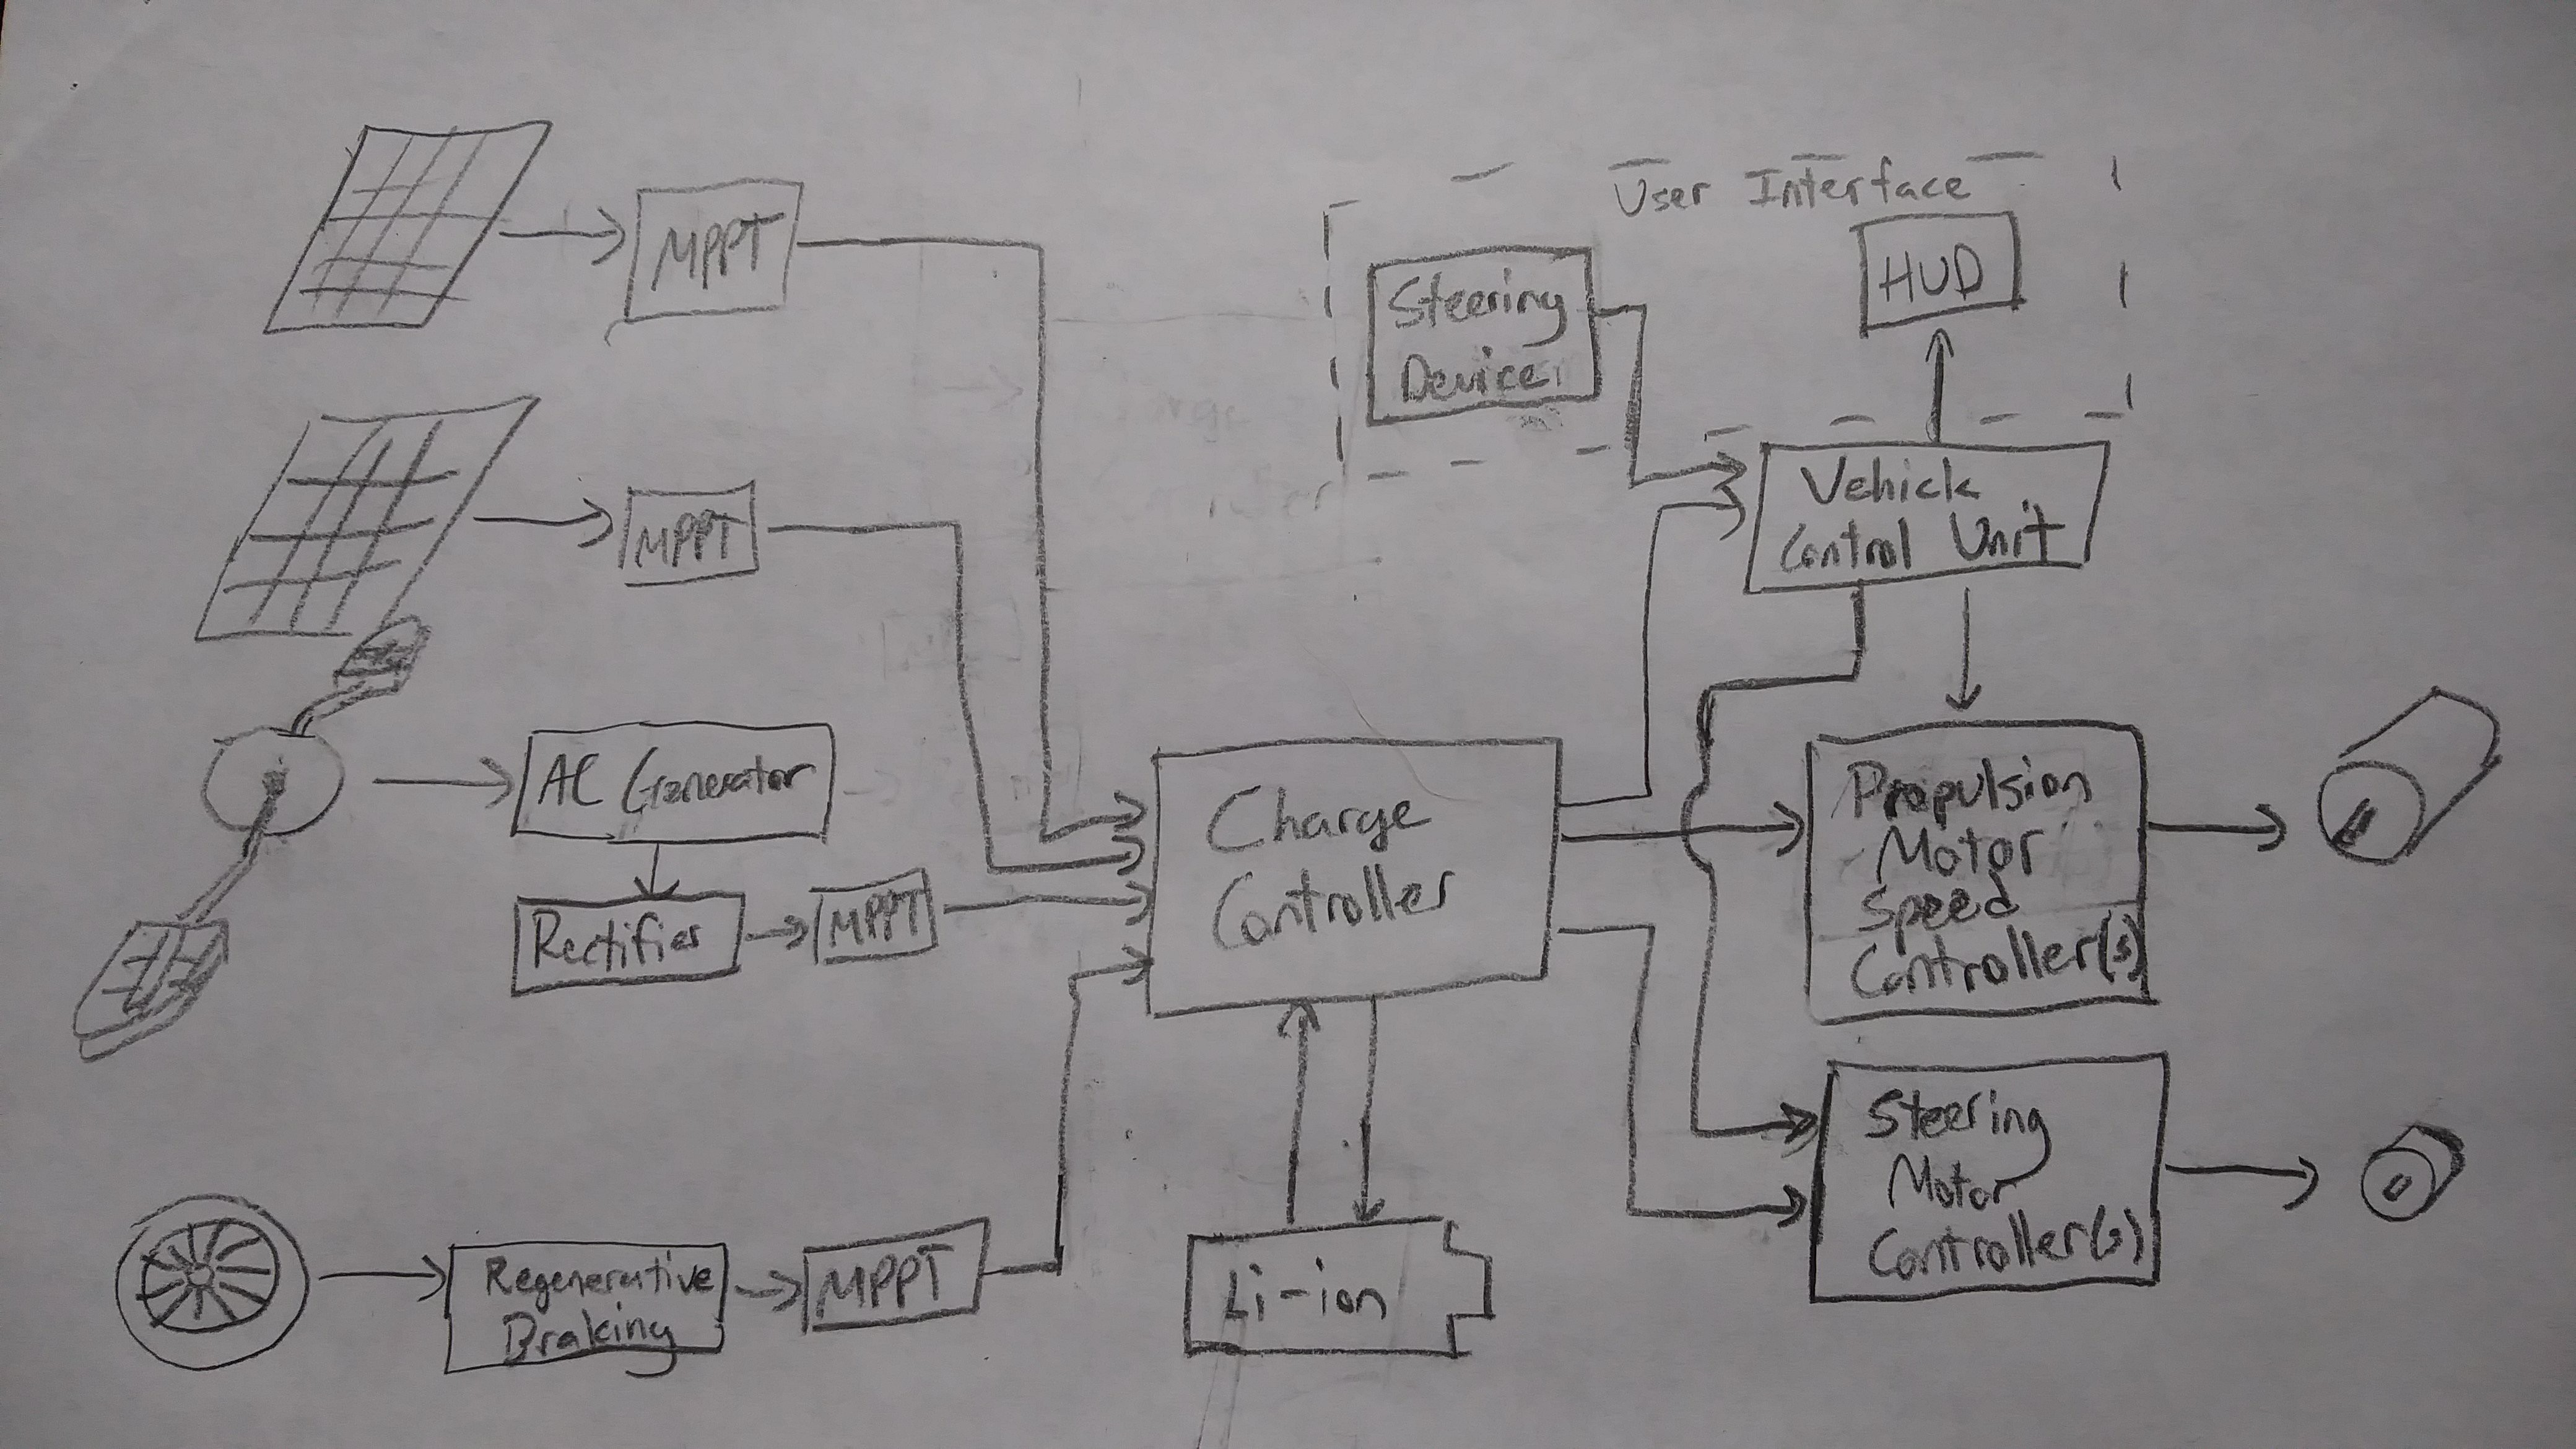 MPPT
User Interface
HUD
Steering
Device
MPPT
Vehicle
Control Unit
AC Generator
Rectifier
MPPT
Charge
Controller
Propulsion
Motor
Speed
Controller(s)
Regenerative
Braking
MPPT
Li-ion
Steering
Motor
Controller(s)